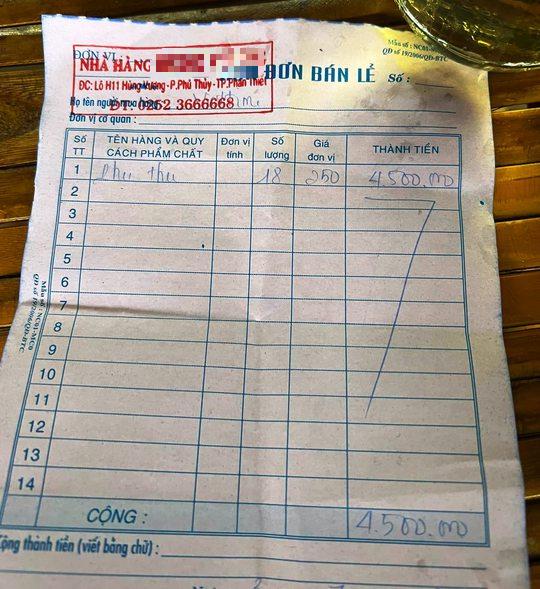 ĐƠN VỊ :
NHÀ HÀNG
ĐC: Lô H11 Hùng Vương - P.Phú Thủy - TP.Phan Thiết
ĐT: 0252 3666668
Mẫu số : NC01-
QĐ số 19/2006/QĐ-BTC
ĐƠN BÁN LẺ Số :
Họ tên người mua hàng
Đơn vị cơ quan :
Số TT TÊN HÀNG VÀ QUY CÁCH PHẨM CHẤT Đơn vị tính Số lượng Giá đơn vị THÀNH TIỀN
1 Phụ thu 18 250 4.500.000
2
3
4
5
6
7
8
9
10
11
12
13
14
CỘNG : 4.500.000
Cộng thành tiền (viết bằng chữ) :
Mẫu số : NC01-MC0
QĐ số 19/2006/QĐ-BTC